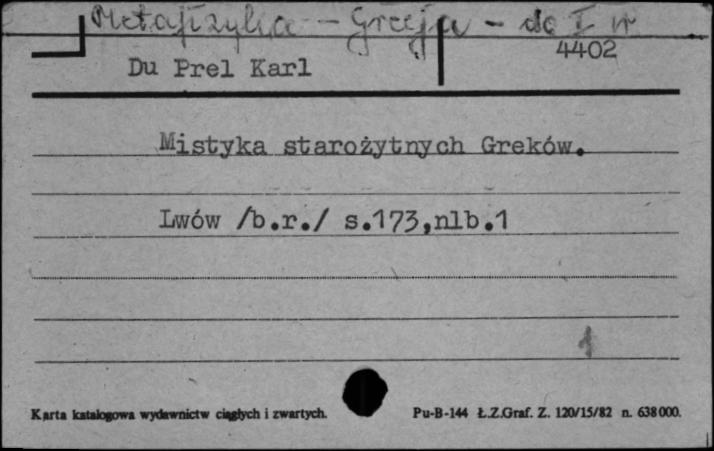 Metafizyka - Grecja - do I w
4402
Du Prel Karl
Mistyka starożytnych Greków.
Lwów /b.r./ s.173,nlb.1
1
Karta katalogowa wydawnictw ciągłych i zwartych.
Pu-B-144 Ł.Z.Graf. Z. 120/15/82 n. 638000.